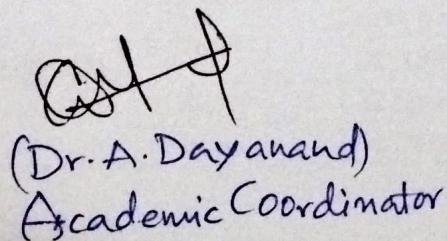 (Dr. A. Dayanand)
Academic Coordinator